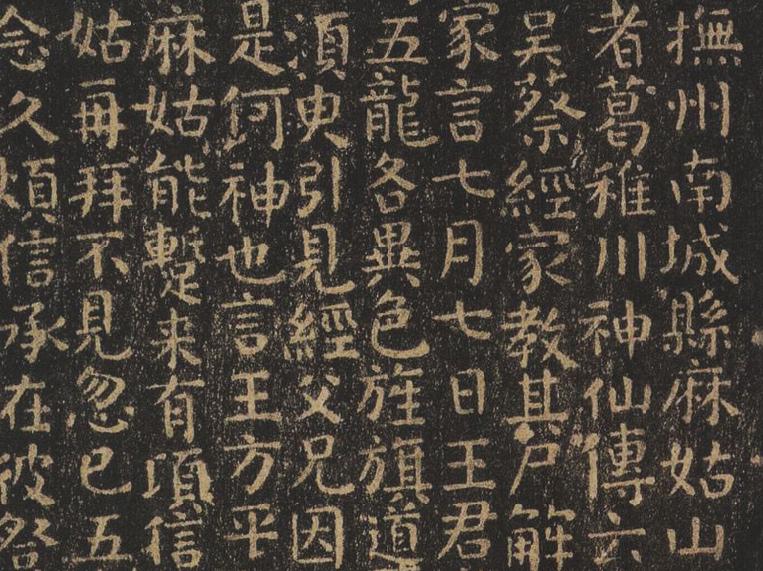 撫州南城縣麻姑山
者葛稚川神仙傳云
吳蔡經家教其尸解
家言七月七日王君
五龍各異色旌旗道
須臾引見經父兄因
是何神也言王方平
麻姑能蹔来有頃信
姑再拜不見忽已五
念久煩信承在彼登